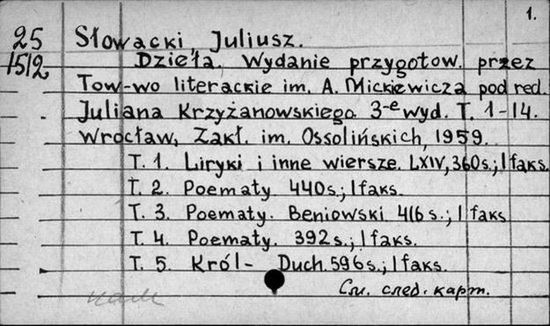 1.
25
1512
Słowacki, Juliusz.
Dzieła. Wydanie przygotow. przez
Tow-wo literackie im. A. Mickiewicza pod red.
Juliana Krzyżanowskiego 3-e wyd. T. 1-14.
Wrocław, Zakł. im. Ossolińskich, 1959.
T. 1. Liryki i inne wiersze. LXIV, 360s.; 1 faks.
T. 2. Poematy 440s.; 1 faks.
T. 3. Poematy. Beniowski 416 s.; 1 faks
T. 4. Poematy. 392s.; 1 faks.
T. 5. Król-Duch. 596s.; 1 faks.
См. след. карт.